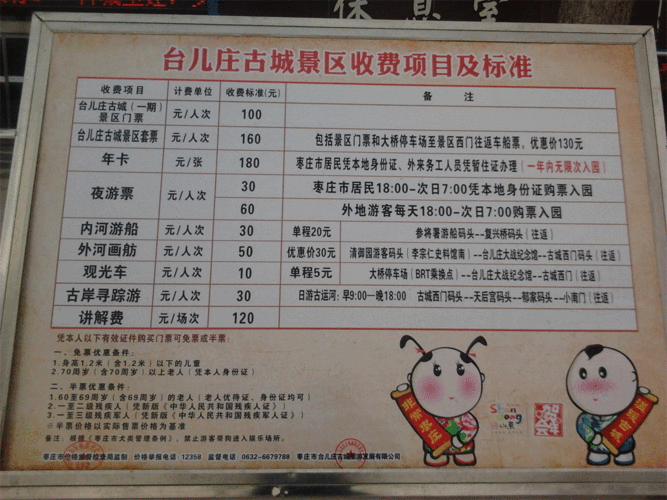 休息室
台儿庄古城景区收费项目及标准
收费项目 计费单位 收费标准(元) 备 注
台儿庄古城(一期)景区门票 元/人次 100
台儿庄古城景区套票 元/人次 160 包括景区门票和大桥停车场至景区西门往返车船票,优惠价130元
年卡 元/张 180 枣庄市居民凭本地身份证、外来务工人员凭暂住证办理(一年内无限次入园)
夜游票 元/人次 30 枣庄市居民18:00-次日7:00凭本地身份证购票入园
60 外地游客每天18:00-次日7:00购票入园
内河游船 元/人次 30 单程20元 参将署游船码头--复兴桥码头(往返)
外河画舫 元/人次 50 优惠价30元 清御园游客码头(李宗仁史料馆南)--台儿庄大战纪念馆--古城西门码头(往返)
观光车 元/人次 10 单程5元 大桥停车场(BRT乘换点)--台儿庄大战纪念馆--古城西门(往返)
古岸寻踪游 元/人次 30 日游古运河:早9:00一晚18:00 古城西门码头--天后宫码头--郁家码头--小南门(往返)
讲解费 元/场次 120
凭本人以下有效证件购买门票可免票或半票:
一、免票优惠条件:
1.身高1.2米(含1.2米)以下的儿童
2.70周岁(含70周岁)以上老人(凭本人身份证)
二、半票优惠条件:
1.60至69周岁(含69周岁)的老人(老人优待证、身份证均可)
2.一至二级残疾人(凭新版《中华人民共和国残疾人证》)
3.一至三级残疾军人(凭新版《中华人民共和国残疾军人证》)
※半票价格以实际售票价格为基准
备注:根据《枣庄市犬类管理条例》,禁止游客带狗进入娱乐场所。
枣庄市价格监督检查局监制 价格举报电话:12358 监督电话:0632-6679788 枣庄市台儿庄古城旅游发展有限公司